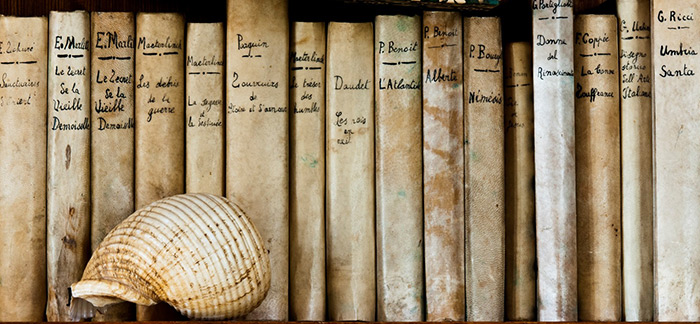 E. Marlitt
Le Secret
de la
Vieille
Demoiselle
E. Marlitt
Le Secret
de la
Vieille
Demoiselle
Maeterlinck
Les débris
de la
guerre
Maeterlinck
La sagesse
et la
destinée
Paquin
de
gloire et d'amour
Maeterlinck
Le trésor
des
humbles
Daudet
Les rois
en
exil
P. Benoit
L'Atlantide
P. Benoit
Alberte
P. Bourget
Némésis
Donne
del
Rinascimento
F. Coppée
La Bonne
Souffrance
Disegno
Storico
dell'Arte
Italiana
G. Ricci
Umbria
Santa